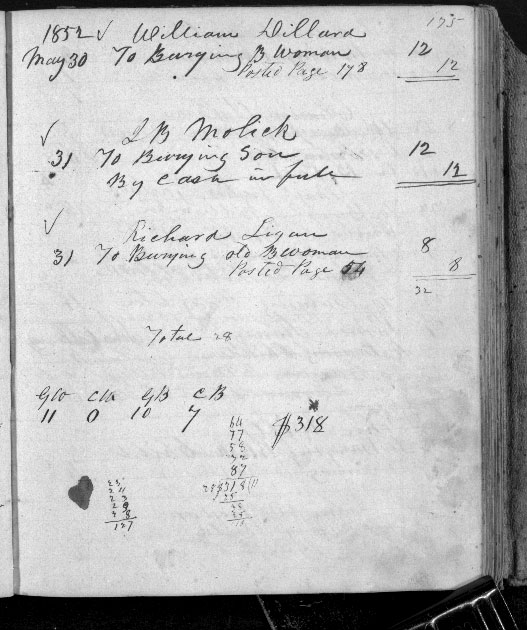 175
1852 ✓ William Dillard
May 30 To Burying B Woman 12
Posted Page 178 12
✓ J B Molick
31 To Burying Son 12
By Cash in full 12
✓ Richard Ligan
31 To Burying old B woman 8
Posted Page 54 8
32
Total 28
GW CW GB CB
11 0 10 7
$318
64
77
58
32
87
318
25
127